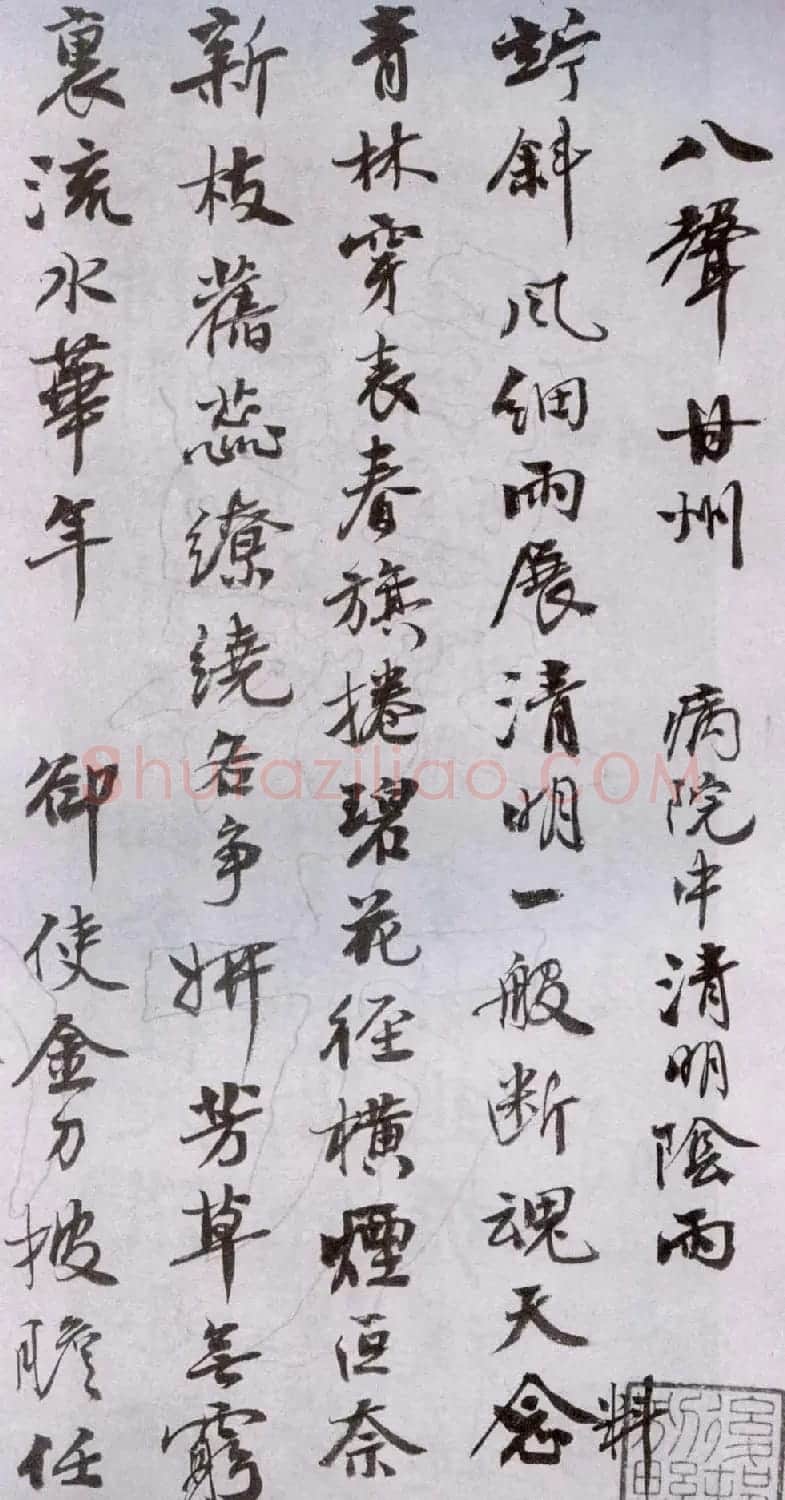 八聲甘州 病院中清明陰雨
竚斜風細雨展清明一般断魂天念
料
青林穿表春旗捲碧花徑橫煙叵奈
新枝舊蕊繚繞各爭妍芳草無窮
裏流水華年 卻使金刀披膽任
Shufaziliao.COM